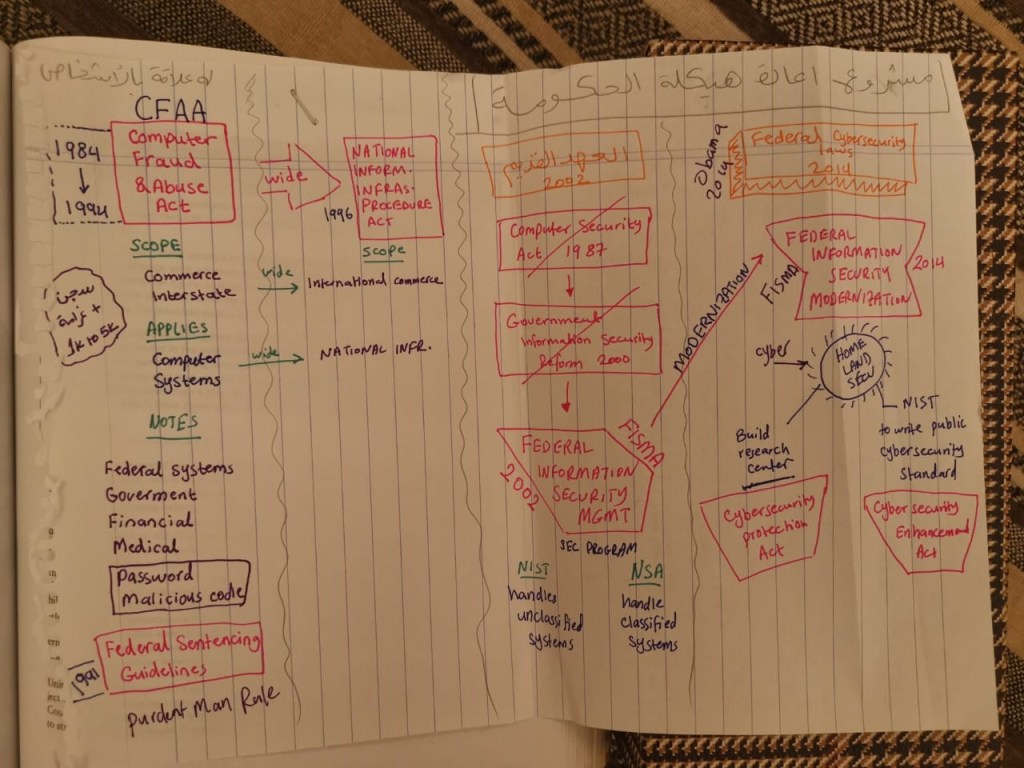 له علاقة بالأشخاص
CFAA
1984
1994
Computer
Fraud
& Abuse
Act
SCOPE
Commerce
Interstate
سجن
+ غرامة
1k to 5k
APPLIES
Computer
Systems
NOTES
Federal systems
Goverment
Financial
Medical
Password
Malicious code
1991
Federal Sentencing
Guidelines
purdent Man Rule
wide
1996
NATIONAL
INFORM.
INFRAS-
PROCEDURE
ACT
SCOPE
wide
International commerce
wide
NATIONAL INFR.
مشروع اعادة هيكلة الحكومة
العهد القديم
2002
Computer Security
Act 1987
Government
Information Security
Reform 2000
FEDERAL
INFORMATION
SECURITY
MGMT
2002
FISMA
SEC PROGRAM
NIST
handles
unclassified
systems
NSA
handle
classified
systems
MODERNIZATION
Obama
2014
Federal Cybersecurity
laws
2014
FISMA
FEDERAL
INFORMATION
SECURITY
MODERNIZATION
2014
cyber
HOME
LAND
SECU
Build
research
center
NIST
to write public
cybersecurity
standard
Cybersecurity
protection
Act
Cybersecurity
Enhancement
Act